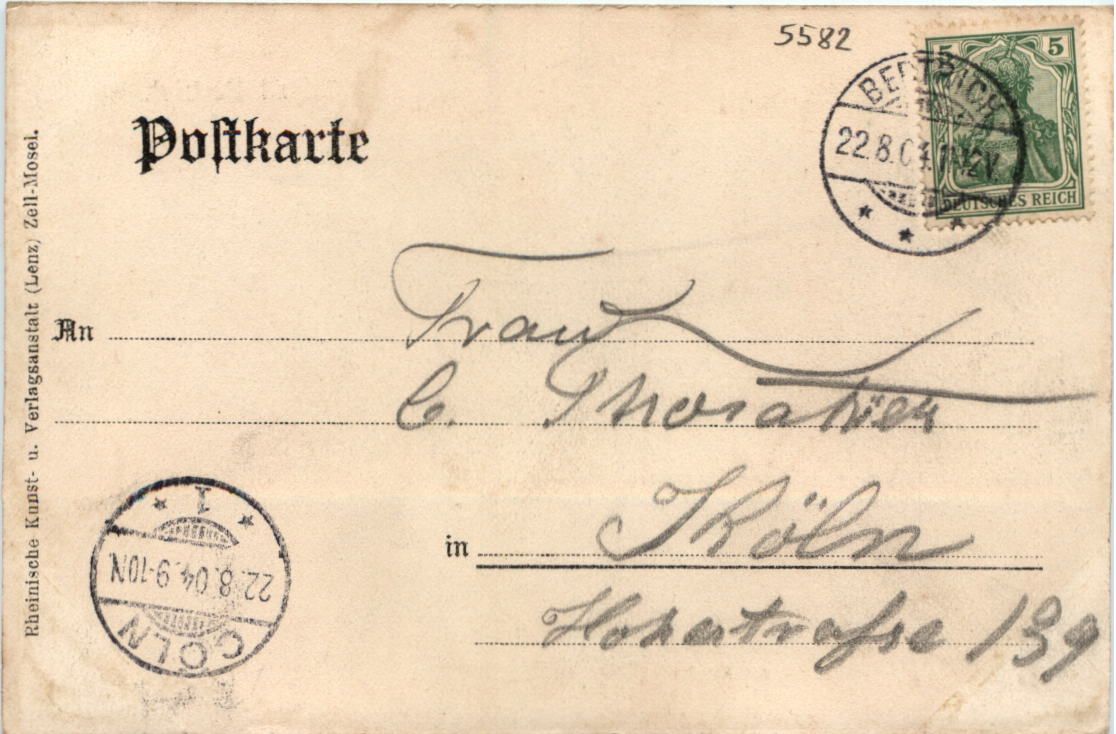 5582
5 5
DEUTSCHES REICH
BERTRICH
22.8.04. 11-12V.
Postkarte
An
Frau
C.
in Köln
Hohestrasse 139
1
22.8.04. 9-10N.
CÖLN
Rheinische Kunst- u. Verlagsanstalt (Lenz) Zell-Mosel.